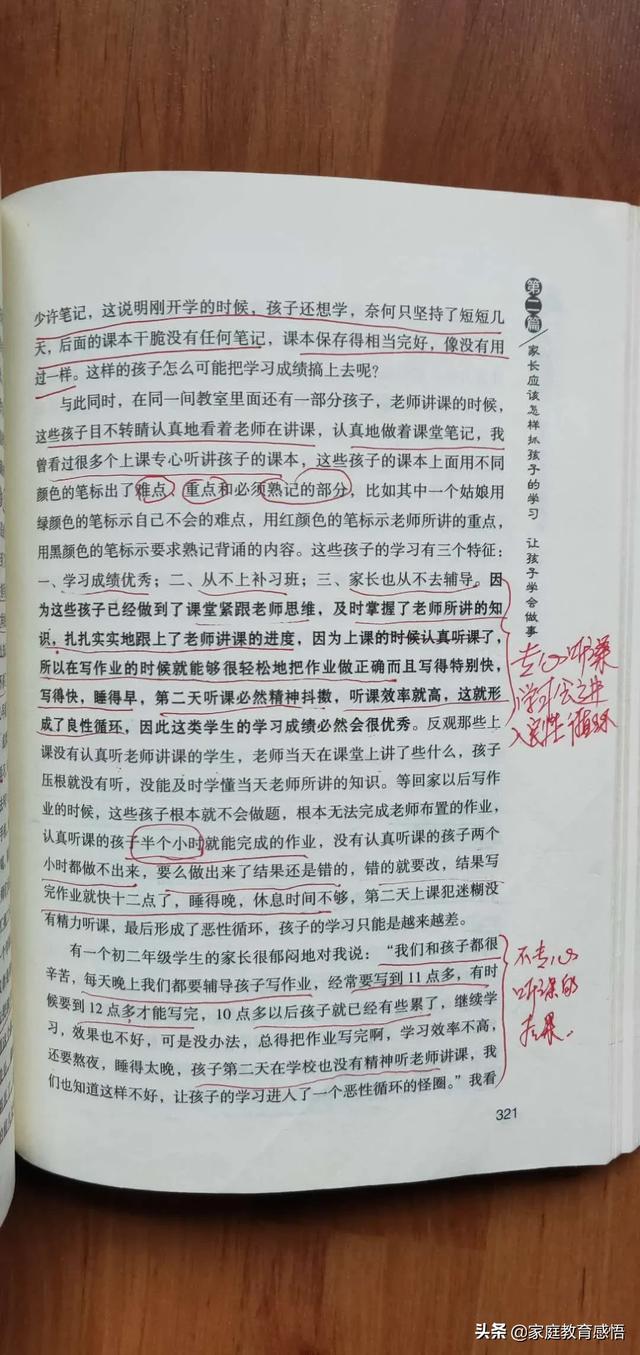 少许笔记，这说明刚开学的时候，孩子还想学，奈何只坚持了短短几
天，后面的课本干脆没有任何笔记，课本保存得相当完好，像没有用
过一样。这样的孩子怎么可能把学习成绩搞上去呢？
与此同时，在同一间教室里面还有一部分孩子，老师讲课的时候，
这些孩子目不转睛认真地看着老师在讲课，认真地做着课堂笔记，我
曾看过很多个上课专心听讲孩子的课本，这些孩子的课本上面用不同
颜色的笔标出了难点、重点和必须熟记的部分，比如其中一个姑娘用
绿颜色的笔标示自己不会的难点，用红颜色的笔标示老师所讲的重点，
用黑颜色的笔标示要求熟记背诵的内容。这些孩子的学习有三个特征：
一、学习成绩优秀；二、从不上补习班；三、家长也从不去辅导。因
为这些孩子已经做到了课堂紧跟老师思维，及时掌握了老师所讲的知
识，扎扎实实地跟上了老师讲课的进度，因为上课的时候认真听课了，
所以在写作业的时候就能够很轻松地把作业做正确而且写得特别快，
写得快，睡得早，第二天听课必然精神抖擞，听课效率就高，这就形
成了良性循环，因此这类学生的学习成绩必然会很优秀。反观那些上
课没有认真听老师讲课的学生，老师当天在课堂上讲了些什么，孩子
压根就没有听，没能及时学懂当天老师所讲的知识。等回家以后写作
业的时候，这些孩子根本就不会做题，根本无法完成老师布置的作业，
认真听课的孩子半个小时就能完成的作业，没有认真听课的孩子两个
小时都做不出来，要么做出来了结果还是错的，错的就要改，结果写
完作业就快十二点了，睡得晚，休息时间不够，第二天上课犯迷糊没
有精力听课，最后形成了恶性循环，孩子的学习只能是越来越差。
有一个初二年级学生的家长很郁闷地对我说：“我们和孩子都很
辛苦，每天晚上我们都要辅导孩子写作业，经常要写到11点多，有时
候要到12点多才能写完，10点多以后孩子就已经有些累了，继续学
习，效果也不好，可是没办法，总得把作业写完啊，学习效率不高，
还要熬夜，睡得太晚，孩子第二天在学校也没有精神听老师讲课，我
们也知道这样不好，让孩子的学习进入了一个恶性循环的怪圈。”我看
321
第二篇
家长应该怎样抓孩子的学习 让孩子学会做事
专心听课
学习会进
入良性循环
不专心
听课的
后果.
头条 @家庭教育感悟